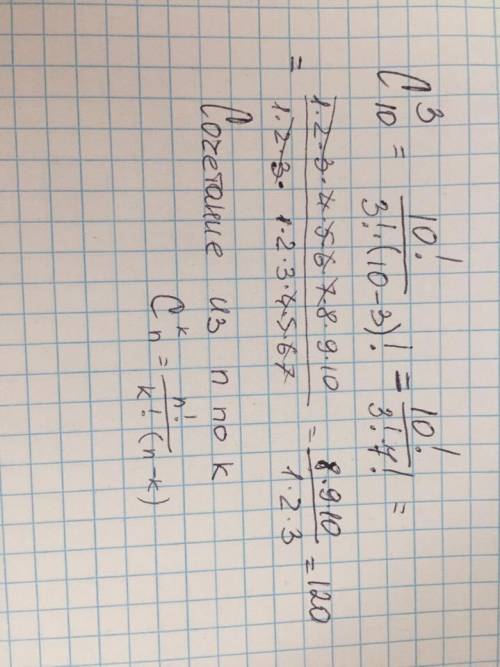 C³₁₀ = 10! / 3!·(10-3)! = 10! / 3!·7! =
= 1·2·3·4·5·6·7·8·9·10 / 1·2·3·1·2·3·4·5·6·7 = 8·9·10 / 1·2·3 = 120
Сочетание из n по k
Cᵏₙ = n! / k!·(n-k)